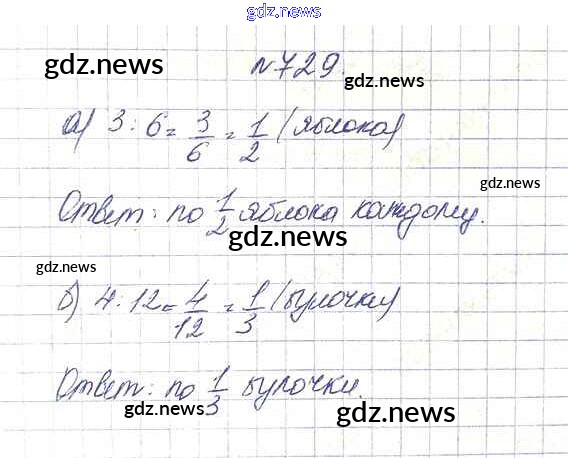 gdz.news
gdz.news
№729.
gdz.news
а) 3 : 6 = 3/6 = 1/2 (яблока)
gdz.news
Ответ: по 1/2 яблока каждому.
gdz.news
gdz.news
б) 4 : 12 = 4/12 = 1/3 (булочки)
gdz.news
Ответ: по 1/3 булочки.
gdz.news
gdz.news